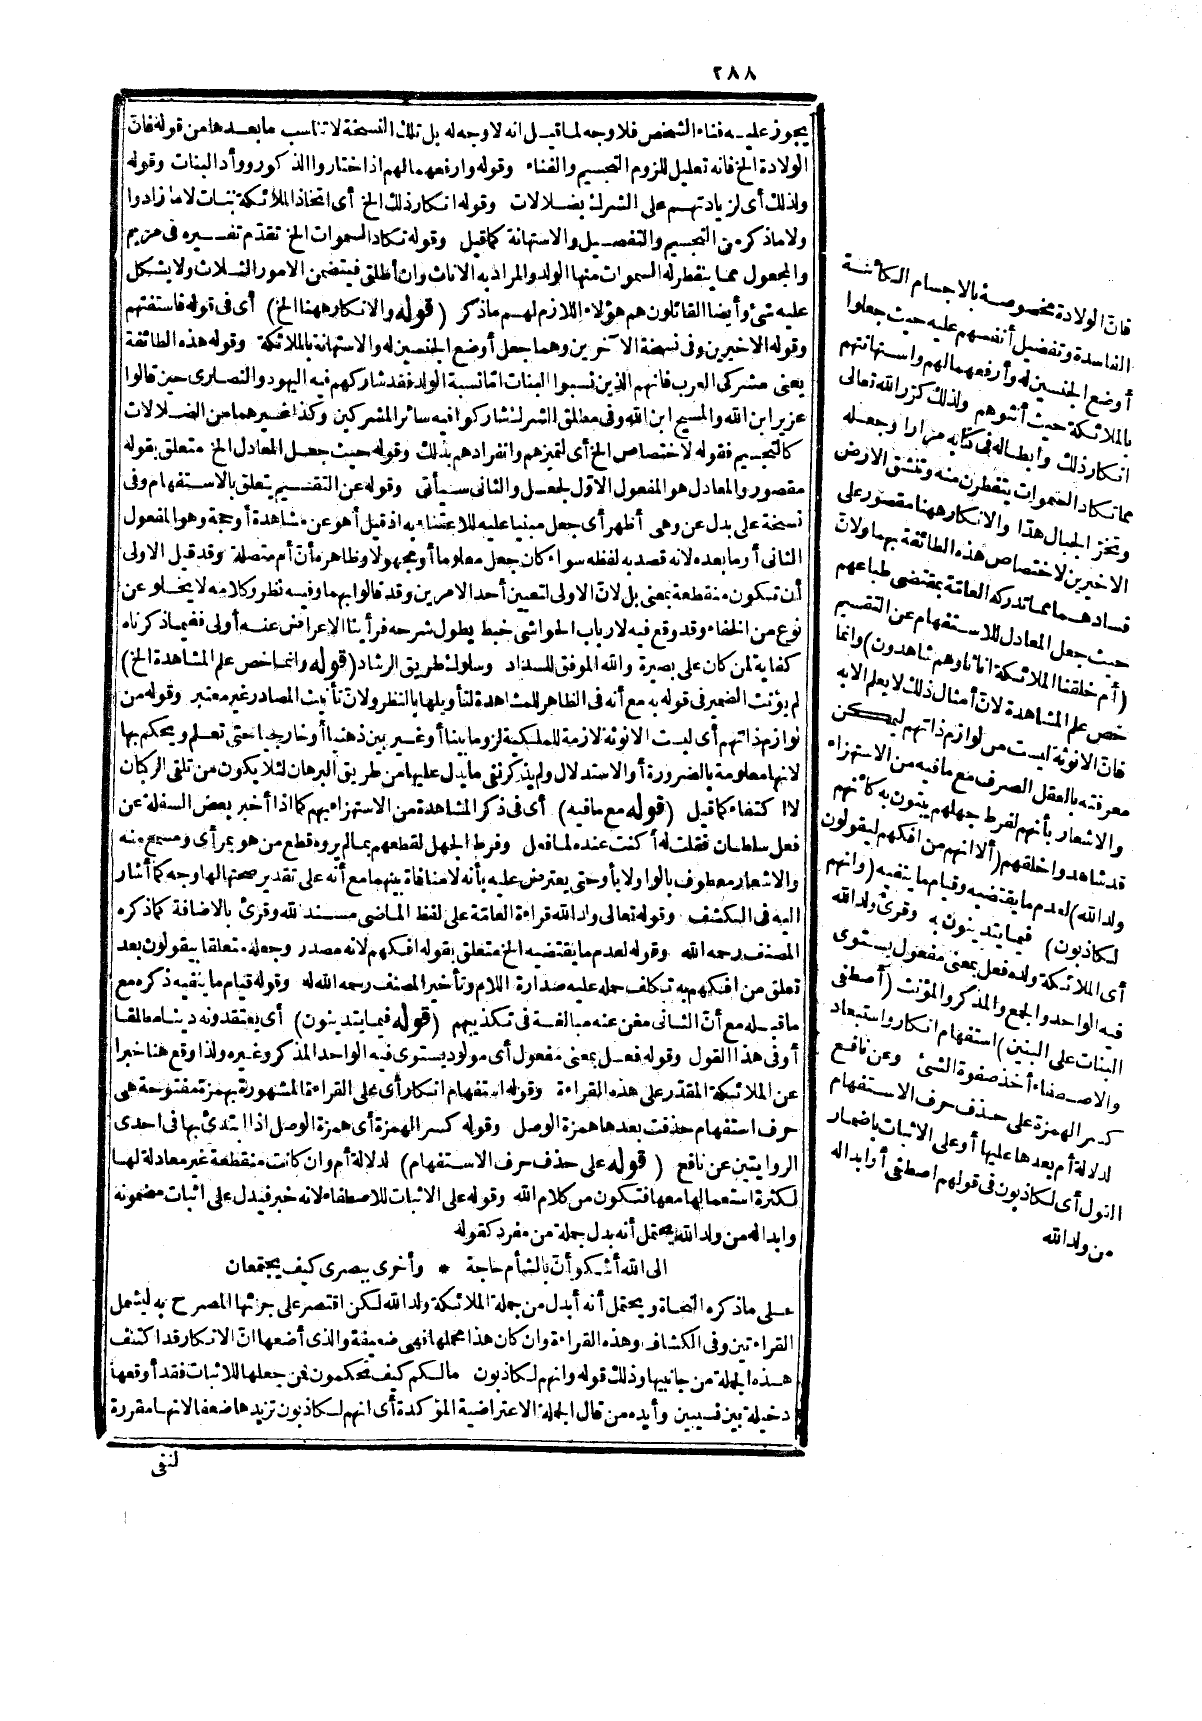 ٢٨٨
يجوز عليه فناء الشخص فلا وجه لما قيل انه لا وجه له بل تلك النسخة لا تناسب ما بعدها من قوله فانّ
الولادة الخ فانه تعليل للزوم التجسيم والفناء وقوله وارفعهما لهم اذ اختاروا الذكور ووأد البنات وقوله
ولذلك أى لزيادتهم على الشرك بضلالات وقوله انكار ذلك الخ أى اتخاذ الملائكة بنات لا ما زادوا
ولا ما ذكره من التجسيم والتفضيل والاستهانة كما قيل وقوله تكاد السموات الخ تقدّم تفسيره فى مريم
والمجعول مما ينفطر له السموات منها الولد والمراد به الاناث وان أطلق فيتضمن الامور الثلاث ولا يشكل
عليه شئ وأيضا القائلون هم هؤلاء اللازم لهم ماذكر (قوله والانكار ههنا الخ) أى فى قوله فاستفتهم
وقوله الاخيرين وفى نسخة الآخرين وهما جعل أوضع الجنسين له والاستهانة بالملائكة وقوله هذه الطائفة
يعنى مشركى العرب فانهم الذين نسبوا البنات امّا نسبة الولد فقد شاركهم فيه اليهود والنصارى حين قالوا
عزير ابن الله والمسيح ابن الله وفى مطلق الشرك شاركوا فيه سائر المشركين وكذا غيرهما من الضلالات
كالتجسيم فقوله لاختصاص الخ أى لتميزهم وانفرادهم بذلك وقوله حيث جعل المعادل الخ متعلق بقوله
مقصور والمعادل هو المفعول الاوّل لجعل والثانى سيأتى وقوله عن التقسيم يتعلق بالاستفهام وفى
نسخة على بدل عن وهى أظهر أى جعل مبنيا عليه للاعتناء به اذ قيل أهو عن مشاهدة أو حجة وهو المفعول
الثانى أو ما بعده لانه قصد به لفظه سواء كان جعل معلوما أو مجهولا وظاهره أنّ أم متصلة وقد قيل الاولى
أن تكون منقطعة بمعنى بل لانّ الاولى لتعيين أحد الامرين وقد قالوا بهما وفيه نظر وكلامه لا يخلو عن
نوع من الخفاء وقد وقع فيه لارباب الحواشى خبط يطول شرحه فرأينا الاعراض عنه أولى ففيما ذكرناه
كفاية لمن كان على بصيرة والله الموفق للسداد وسلوك طريق الرشاد (قوله وانما خص علم المشاهدة الخ)
لم يؤنث الضمير فى قوله به مع أنه فى الظاهر للمشاهدة لتأويلها بالنظر ولانّ تأنيث المصادر غير معتبر وقوله من
لوازم ذاتهم أى ليست الانوثة لازمة للملكية لزوما بينا أو غير بين ذهنيا أو خارجيا حتى تعلم ويحكم بها
لانها معلومة بالضرورة أو الاستدلال ولم يذكر نفى ما يدل عليها من طريق البرهان لئلا يكون من تلقى الركبان
لا اكتفاء كما قيل (قوله مع ما فيه) أى فى ذكر المشاهدة من الاستهزاء بهم كما اذا أخبر بعض السفلة عن
فعل سلطان فقلت له أكنت عنده لما فعل وفرط الجهل لقطعهم بما لم يروه قطع من هو بمرأى ومسمع منه
والاشعار معطوف بالواو لا بأو حتى يعترض عليه بأنه لا منافاة بينهما مع أنه على تقدير صحتها لها وجه كما أشار
اليه فى الكشف وقوله تعالى ولد الله قراءة العامّة على لفظ الماضى مسند لله وقرئ بالاضافة كما ذكره
المصنف رحمه الله وقوله لعدم ما يقتضيه الخ متعلق بقوله افكهم لانه مصدر وجعله متعلقا بيقولون بعد
تعلق من افكهم به تكلف حمله عليه صدارة اللام وتأخير المصنف رحمه الله له وقوله قيام ما ينفيه ذكره مع
ما قبله مع أنّ الثانى مغن عنه مبالغة فى تكذيبهم (قوله فيما يتدينون) أى يعتقدونه دينا مطلقا
أو فى هذا القول وقوله فعل بمعنى مفعول أى مولود يستوى فيه الواحد المذكر وغيره ولذا وقع هنا خبرا
عن الملائكة المقدر على هذه القراءة وقوله استفهام انكار أى على القراءة المشهورة بهمزة مفتوحة هى
حرف استفهام حذفت بعدها همزة الوصل وقوله كسر الهمزة أى همزة الوصل اذا ابتدئ بها فى احدى
الروايتين عن نافع (قوله على حذف حرف الاستفهام) لدلالة أم وان كانت منقطعة غير معادلة لها
لكثرة استعمالها معها فتكون من كلام الله وقوله على الاثبات للاصطفاء لانه خبر فيدل على اثبات مضمونه
وابداله من ولد الله يحتمل أنه بدل جملة من مفرد كقوله
الى الله أشكو أنّ بالشأم حاجة * وأخرى ببصرى كيف يجتمعان
على ما ذكره النحاة ويحتمل أنه أبدل من جملة الملائكة ولد الله لكن اقتصر على جزئها المصرح به ليشمل
القراءتين وفى الكشاف وهذه القراءة وان كان هذا محملها فهى ضعيفة والذى أضعفها انّ الانكار قد اكتنف
هذه الجملة من جانبيها وذلك قوله وانهم لكاذبون ما لكم كيف تحكمون فمن جعلها للاثبات فقد أوقعها
دخيلة بين نسيبين وأيده من قال الجملة الاعتراضية المؤكدة أى انهم لكاذبون تزيدها ضعفا لانها مقررة
لنفى
فانّ الولادة مخصوصة بالاجسام الكائنة
الفاسدة وتفضيل أنفسهم عليه حيث جعلوا
أوضع الجنسين له وأرفعهما لهم واستهانتهم
بالملائكة حيث أنثوهم ولذلك كرّر الله تعالى
انكار ذلك وابطاله فى كتابه مرارا وجعله
مما تكاد السموات يتفطرن منه وتنشق الارض
وتخرّ الجبال هدّا والانكار ههنا مقصور على
الاخيرين لاختصاص هذه الطائفة بهما ولانّ
فسادهما مما تدركه العامّة بمقتضى طباعهم
حيث جعل المعادل للاستفهام عن التقسيم
(أم خلقنا الملائكة اناثا وهم شاهدون) وانما
خص علم المشاهدة لانّ أمثال ذلك لا يعلم الا به
فانّ الانوثة ليست من لوازم ذاتهم ليمكن
معرفته بالعقل الصرف مع ما فيه من الاستهزاء
والاشعار بأنهم لفرط جهلهم يبتون به كأنهم
قد شاهدوا خلقهم (ألا انهم من افكهم ليقولون
ولد الله) لعدم ما يقتضيه وقيام ما ينفيه (وانهم
لكاذبون) فيما يتدينون به وقرئ ولد الله
أى الملائكة ولده فعل بمعنى مفعول يستوى
فيه الواحد والجمع والمذكر والمؤنث (أصطفى
البنات على البنين) استفهام انكار واستبعاد
والاصطفاء أخذ صفوة الشئ وعن نافع
كسر الهمزة على حذف حرف الاستفهام
لدلالة أم بعدها عليها أو على الاثبات باضمار
القول أى لكاذبون فى قولهم اصطفى أو ابداله
من ولد الله